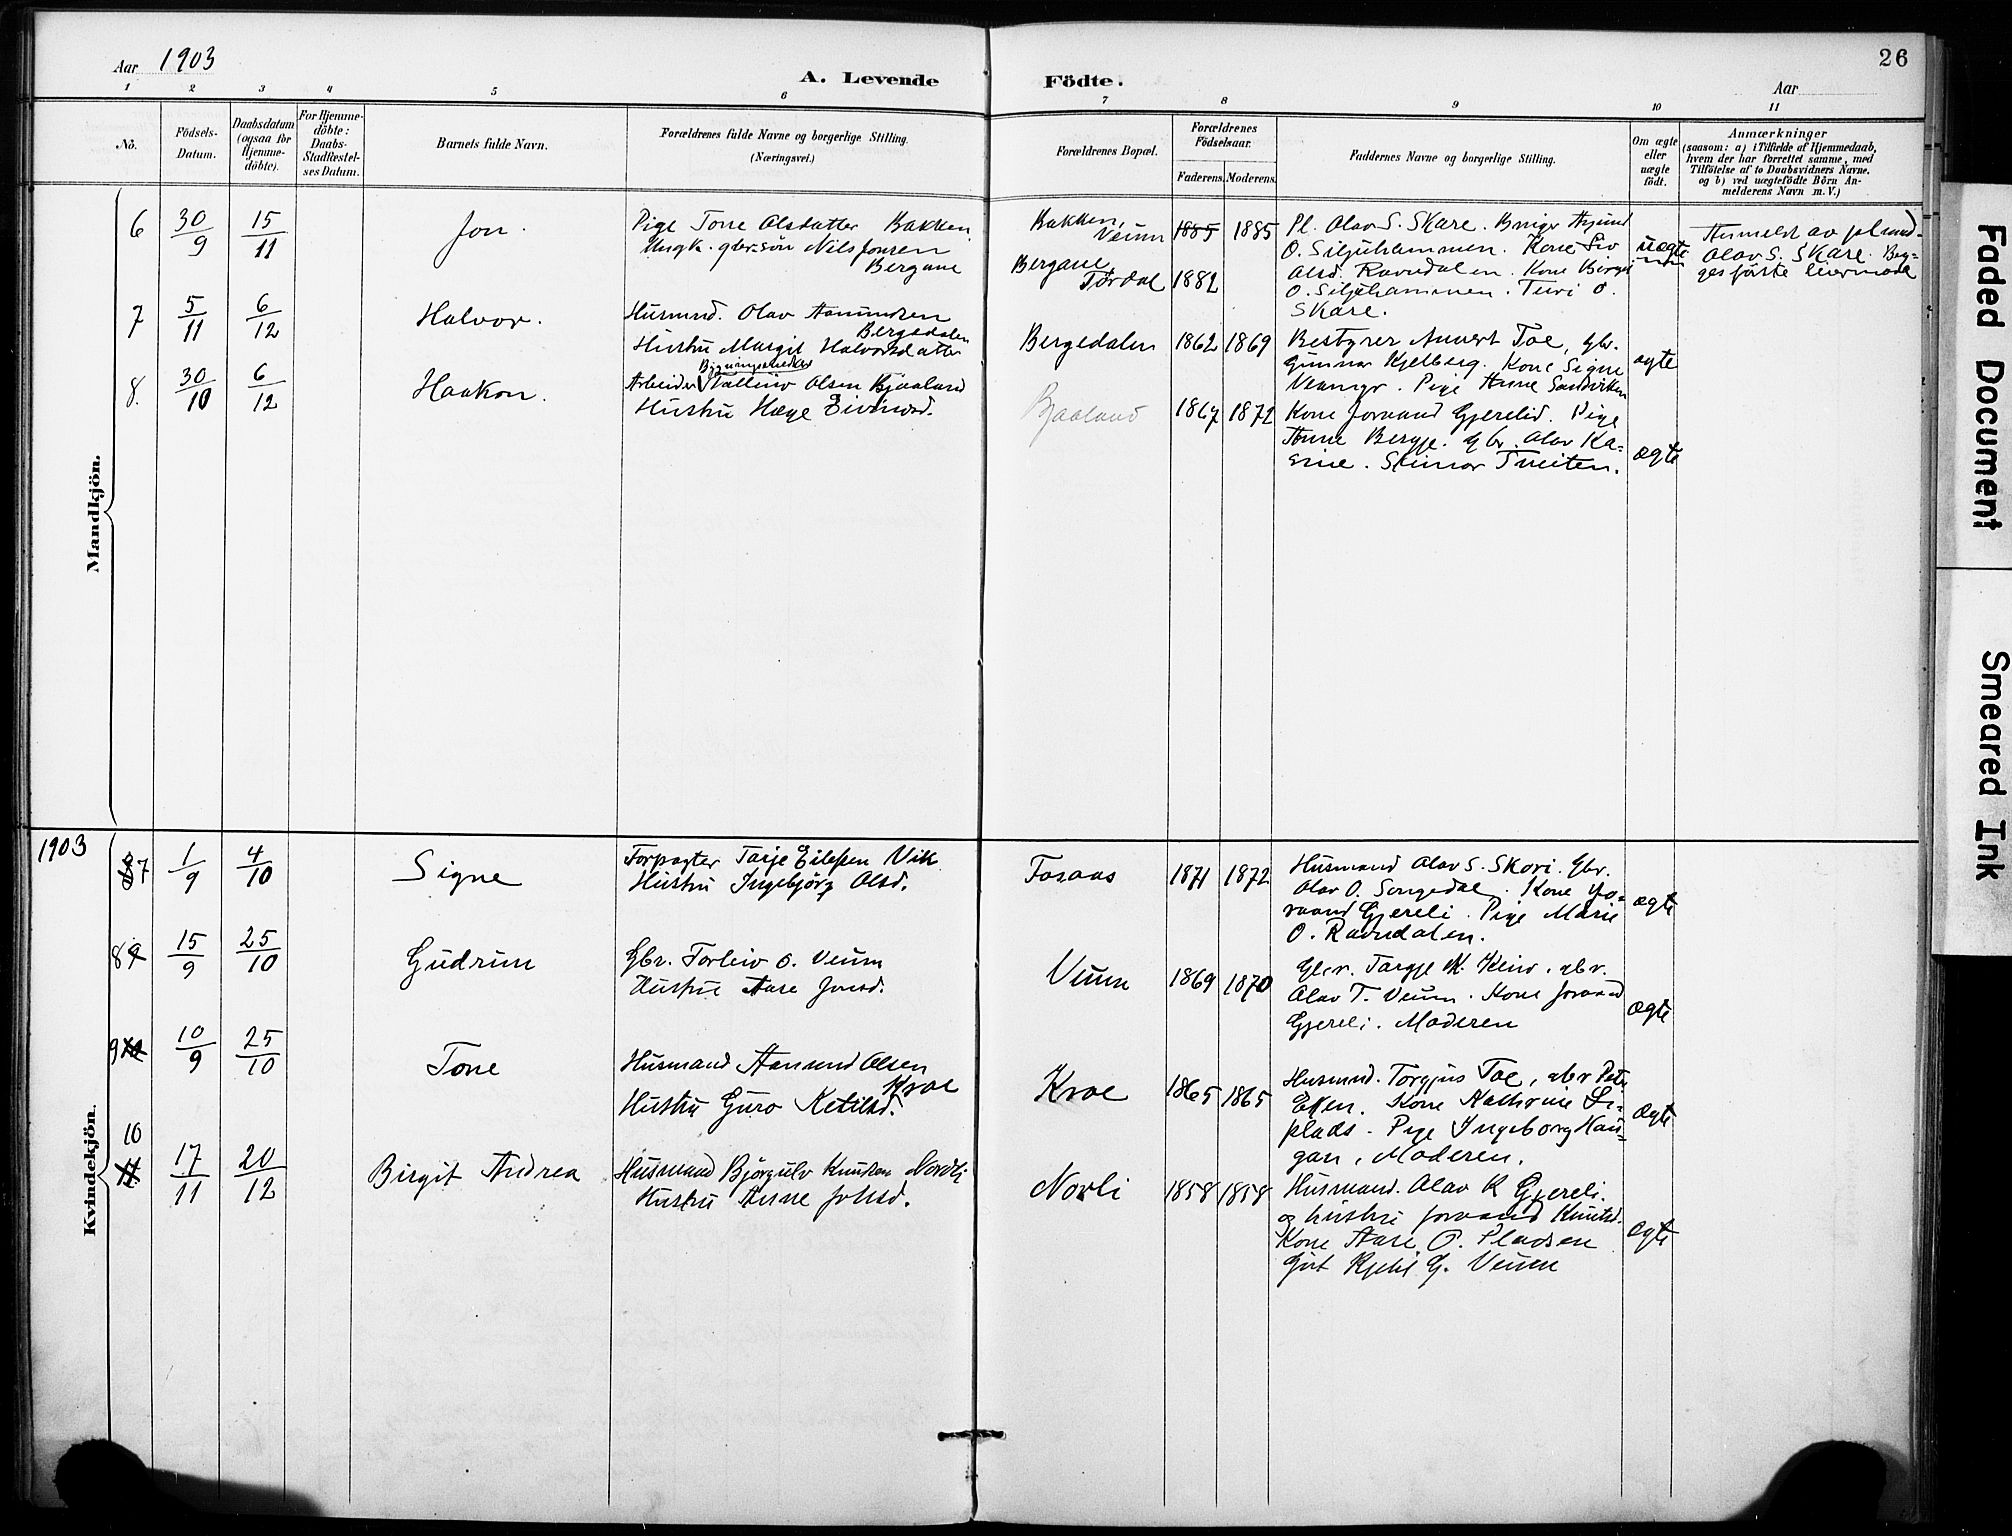 Aar 1903
A. Levende Födte.
Aar
26
1 2 3 4 5 6 7 8 9 10 11
No.
Födsels-
Datum.
Daabsdatum
(ogsaa för
Hjemme-
döbte).
For Hjemme-
döbte:
Daabs-
Stadfæstel-
ses Datum.
Barnets fulde Navn.
Forældrenes fulde Navne og borgerlige Stilling.
(Næringsvei.)
Forældrenes Bopæl.
Forældrenes
Födselsaar.
Faderens. Moderens.
Faddernes Navne og borgerlige Stilling.
Om ægte
eller
uægte
födt.
Anmærkninger
(saasom: a) i Tilfælde af Hjemmedaab,
hvem der har forrettet samme, med
Tilföielse af to Daabsvidners Navne,
og b) ved uægtefödte Börn An-
melderens Navn m. V.)
Mandkjön.
6 30/9 15/11 Jon.
Pige Tone Olsdatter Bakken
Ungk. gbr.sön Nils Jonsen
Bergane
Bakken, Veum
Bergane Tördal
1885 1885
1882
Pl. Olav S. Skare. Bruger
O. Siljuhammen. Kone Liv
Olsd. Ravndalen. Kone Birgit
O. Siljuhammen. Turi O.
Skare.
uægte
Anmeldt av plmd.
Olav S. Skare. Beg-
ges förste leiermaal
7 5/11 6/12 Halvor.
Husmnd. Olav Aanundsen
Bergedalen
Hustru Margit Halvorsdatter
Bergedalen 1862 1869
Bestyrer Anvert Toe, Gbr.
Gunnar Kjelberg. Kone Signe
Pige Anne Sandviken
ægte
8. 30/10 6/12 Haakon.
Arbeider Olsen Bjaaland
Hustru Hæge Eivindsd.
Bjaaland 1867 1872
Kone Joraand Gjerelid. Pige
Anne Bergje. Gbr. Olav Ka-
sine. Steinar Tveiten.
ægte
1903
Kvindekjön.
7 1/9 4/10 Signe
Forpagter Tarje Eilefsen Vik
Hustru Ingebjörg Olsd.
Fosaas 1871 1872
Husmand Olav S. Skori. Gbr.
Olav O. Songedal. Kone Jo-
raand Gjereli. Pige Marie
O. Ravndalen.
ægte
8 9 15/9 25/10 Gudrun
Gbr. Torleiv O. Veum
Hustru Aase Jonsd.
Veum 1869 1870
Gbr. Targje K. gbr.
Olav T. Veum. Kone Joraand
Gjereli. Moderen
ægte
9 10 10/9 25/10 Tone
Husmand Aanund Olsen
Kroe
Hustru Guro Ketilsd.
Kroe 1865 1865
Husmnd. Torgjus Toe, gbr Petr
Eken. Kone Kathrine
plads. Pige Ingeborg Hau-
gan, Moderen.
ægte
10
11 17/11 20/12 Birgit Andrea
Husmand Björgulv Knutsen Nordli
Hustru Anne Johsd.
Norli 1858 1858
Husmand. Olav K Gjereli.
og hustru Joraand Knutsd.
Kone Aase O. Pladsen
Gut Kjetil G. Veum
ægte
Faded Document
Smeared Ink